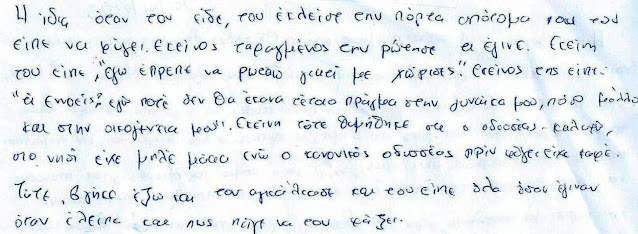 Η ίδια όταν τον είδε, του έκλεισε την πόρτα απότομα και του
είπε να φύγει. Εκείνος ταραγμένος την ρώτησε τι έγινε. Εκείνη
του είπε, "Εγώ έπρεπε να ρωτάω γιατί με χώρισες." Εκείνος της είπε:
"τι εννοείς; εγώ ποτέ δεν θα έκανα τέτοιο πράγμα στην γυναίκα μου, πόσο μάλλον
και στην οικογένεια μου". Εκείνη τότε θυμήθηκε οτι ο οδυσσέας-
στο νησί είχε μπλέ μάτια ενώ ο κανονικός οδυσσέας πρίν φύγει είχε καφέ.
Τότε, βγήκε έξω και τον αγκάλιασε και του είπε όλα όσα έγιναν
όταν έλειπε και πως πήγε να τον ψάξει.